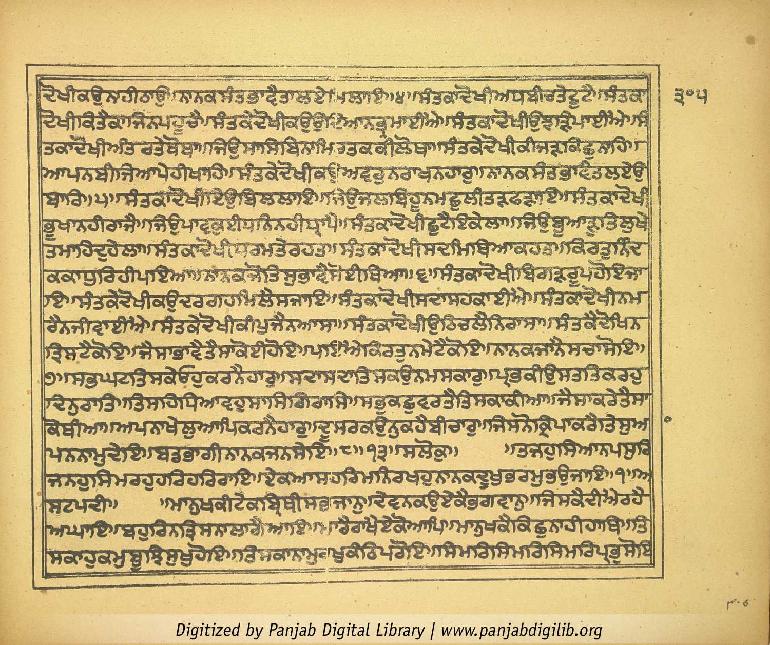 ਦੋਖੀਕਉਨਾਹੀਠਾਉ॥ਨਾਨਕਸੰਤਭਾਵੈਤਾਲਏਮਿਲਾਇ॥੪॥ਸੰਤਕਾਦੋਖੀਅਧਬੀਚਤੇਟੂਟੈ॥ਸੰਤਕਾ ੩੦੫
ਦੋਖੀਕਿਤੈਕਾਜਿਨਪਹੂਚੈ॥ਸੰਤਕੇਦੋਖੀਕਉਉਦਿਆਨਭ੍ਰਮਾਈਐ॥ਸੰਤਕਾਦੋਖੀਉਝੜਿਪਾਈਐ॥ਸੰ
ਤਕਾਦੋਖੀਅੰਤਰਤੇਥੋਥਾ॥ਜਿਉਸਾਸਬਿਨਾਮਿਰਤਕਕੀਲੋਥਾ॥ਸੰਤਕੇਦੋਖੀਕੀਜੜਕਿਛੁਨਾਹਿ॥
ਆਪਨਬੀਜਿਆਪੇਹੀਖਾਹਿ॥ਸੰਤਕੇਦੋਖੀਕਉਅਵਰੁਨਰਾਖਨਹਾਰੁ॥ਨਾਨਕਸੰਤਭਾਵੈਤਲਏਉ
ਬਾਰਿ॥੫॥ਸੰਤਕਾਦੋਖੀਇਉਬਿਲਲਾਇ॥ਜਿਉਜਲਬਿਹੂਨਮਛੁਲੀਤੜਫੜਾਇ॥ਸੰਤਕਾਦੋਖੀ
ਭੂਖਾਨਹੀਰਾਜੈ॥ਜਿਉਪਾਵਕੁਈਧਨਿਨਹੀਧ੍ਰਾਪੈ॥ਸੰਤਕਾਦੋਖੀਛੁਟੈਇਕੇਲਾ॥ਜਿਉਬੂਆੜੁਤਿਲੁਖੇ
ਤਮਾਹਿਦੁਹੇਲਾ॥ਸੰਤਕਾਦੋਖੀਧਰਮਤੇਰਹਤ॥ਸੰਤਕਾਦੋਖੀਸਦਮਿਥਿਆਕਹਤ॥ਕਿਰਤੁਨਿੰਦ
ਕਕਾਧੁਰਿਹੀਪਇਆ॥ਨਾਨਕਜੋਤਿਸੁਭਾਵੈਸੋਈਥਿਆ॥੬॥ਸੰਤਕਾਦੋਖੀਬਿਗੜਰੂਪੁਹੋਇਜਾ
ਇ॥ਸੰਤਕੇਦੋਖੀਕਉਦਰਗਹਮਿਲੈਸਜਾਇ॥ਸੰਤਕਾਦੋਖੀਸਦਾਸਹਕਾਈਐ॥ਸੰਤਕਾਦੋਖੀਨਮ
ਰੈਨਜੀਵਾਈਐ॥ਸੰਤਕੇਦੋਖੀਕੀਪੁਜੈਨਆਸਾ॥ਸੰਤਕਾਦੋਖੀਉਠਿਚਲੈਨਿਰਾਸਾ॥ਸੰਤਕੈਦੋਖਿਨ
ਤ੍ਰਿਸਟੈਕੋਇ॥ਜੈਸਾਭਾਵੈਤੈਸਾਕੋਈਹੋਇ॥ਪਾਈਐਕਿਰਤੁਨਮੇਟੈਕੋਇ॥ਨਾਨਕਜਾਨੈਸਚਾਸੋਇ॥
੭॥ਸਭਘਟਤਿਸਕੇਓਹੁਕਰਨੈਹਾਰੁ॥ਸਦਾਸਦਾਤਿਸਕਉਨਮਸਕਾਰੁ॥ਪ੍ਰਭਕੀਉਸਤਤਿਕਰਹੁ
ਦਿਨੁਰਾਤਿ॥ਤਿਸਹਿਧਿਆਵਹੁਸਾਸਿਗਿਰਾਸਿ॥ਸਭੁਕਛੁਵਰਤੈਤਿਸਕਾਕੀਆ॥ਜੈਸਾਕਰੇਤੈਸਾ
ਕੋਥੀਆ॥ਅਪਨਾਖੇਲੁਆਪਿਕਰਨੈਹਾਰੁ॥ਦੂਸਰਕਉਨੁਕਹੈਬੀਚਾਰੁ॥ਜਿਸਨੋਕ੍ਰਿਪਾਕਰੈਤਿਸੁਆ
ਪਨਨਾਮੁਦੇਇ॥ਬਡਭਾਗੀਨਾਨਕਜਨਸੇਇ॥੮॥੧੩॥ਸਲੋਕੁ॥ ॥ਤਜਹੁਸਿਆਨਪਸੁਰਿ
ਜਨਹੁਸਿਮਰਹੁਹਰਿਹਰਿਰਾਇ॥ਏਕਆਸਹਰਿਮਨਿਰਖਹੁਨਾਨਕਦੂਖੁਭਰਮੁਭਉਜਾਇ॥੧॥ਅ
ਸਟਪਦੀ॥ ॥ਮਾਨੁਖਕੀਟੇਕਬ੍ਰਿਥੀਸਭਜਾਨੁ॥ਦੇਵਨਕਉਏਕੈਭਗਵਾਨੁ॥ਜਿਸਕੈਦੀਐਰਹੈ
ਅਘਾਇ॥ਬਹੁਰਿਨਤ੍ਰਿਸਨਾਲਾਗੈਆਇ॥ਮਾਰੈਰਾਖੈਏਕੋਆਪਿ॥ਮਾਨੁਖਕੈਕਿਛੁਨਾਹੀਹਾਥਿ॥ਤਿ
ਸਕਾਹੁਕਮੁਬੂਝਿਸੁਖੁਹੋਇ॥ਤਿਸਕਾਨਾਮੁਰਖੁਕੰਠਿਪਰੋਇ॥ਸਿਮਰਿਸਿਮਰਿਸਿਮਰਿਪ੍ਰਭੁਸੋਇ
Digitized by Panjab Digital Library | www.panjabdigilib.org